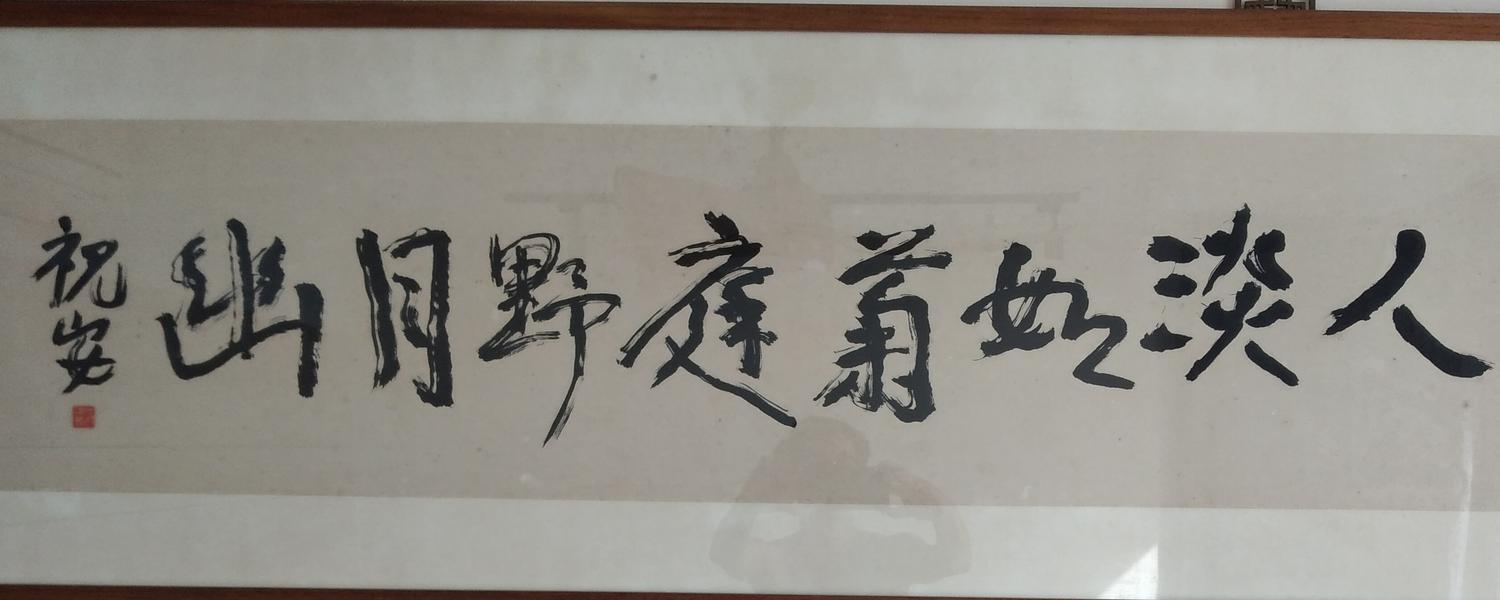 人淡如菊庭野月幽
祝安